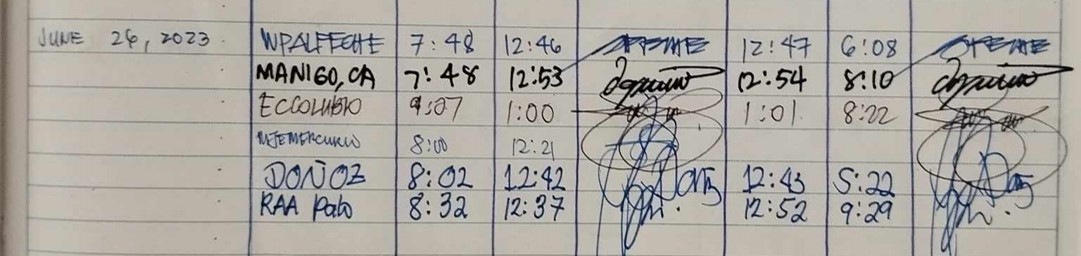 JUNE 26, 2023 WPALFECHE 7:48 12:46 12:47 6:08
MANIGO, CA 7:48 12:53 12:54 8:10
ECCOLUMBIO 9:07 1:00 1:01 8:22
8:00 12:21
DOÑOZ 8:02 12:42 12:43 5:22
RAA Palo 8:32 12:37 12:52 9:29